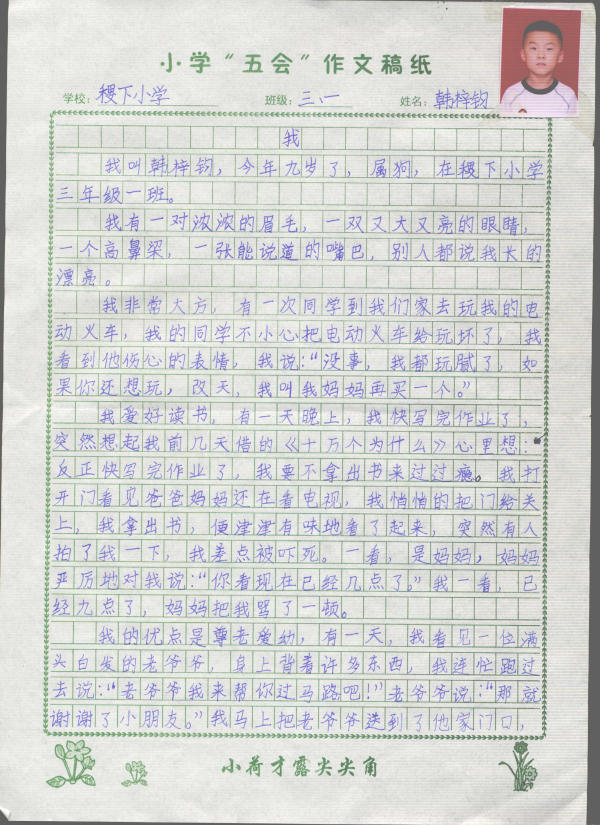 小学“五会”作文稿纸
学校：稷下小学 班级：三、一 姓名：韩梓钧
我
我叫韩梓钧，今年九岁了，属狗，在稷下小学
三年级一班。
我有一对浓浓的眉毛，一双又大又亮的眼睛，
一个高鼻梁，一张能说道的嘴巴，别人都说我长的
漂亮。
我非常大方，有一次同学到我们家去玩我的电
动火车，我的同学不小心把电动火车给玩坏了，我
看到他伤心的表情，我说：“没事，我都玩腻了，如
果你还想玩，改天，我叫我妈妈再买一个。”
我爱好读书，有一天晚上，我快写完作业了，
突然想起我前几天借的《十万个为什么》心里想：
反正快写完作业了，我要不拿出书来过过瘾。我打
开门看见爸爸妈妈还在看电视，我悄悄的把门给关
上，我拿出书，便津津有味地看了起来，突然有人
拍了我一下，我差点被吓死。一看，是妈妈，妈妈
严厉地对我说：“你看现在已经几点了。”我一看，已
经九点了，妈妈把我骂了一顿。
我的优点是尊老爱幼，有一天，我看见一位满
头白发的老爷爷，身上背着许多东西，我连忙跑过
去说：“老爷爷我来帮你过马路吧！”老爷爷说：“那就
谢谢了小朋友。”我马上把老爷爷送到了他家门口，
小荷才露尖尖角